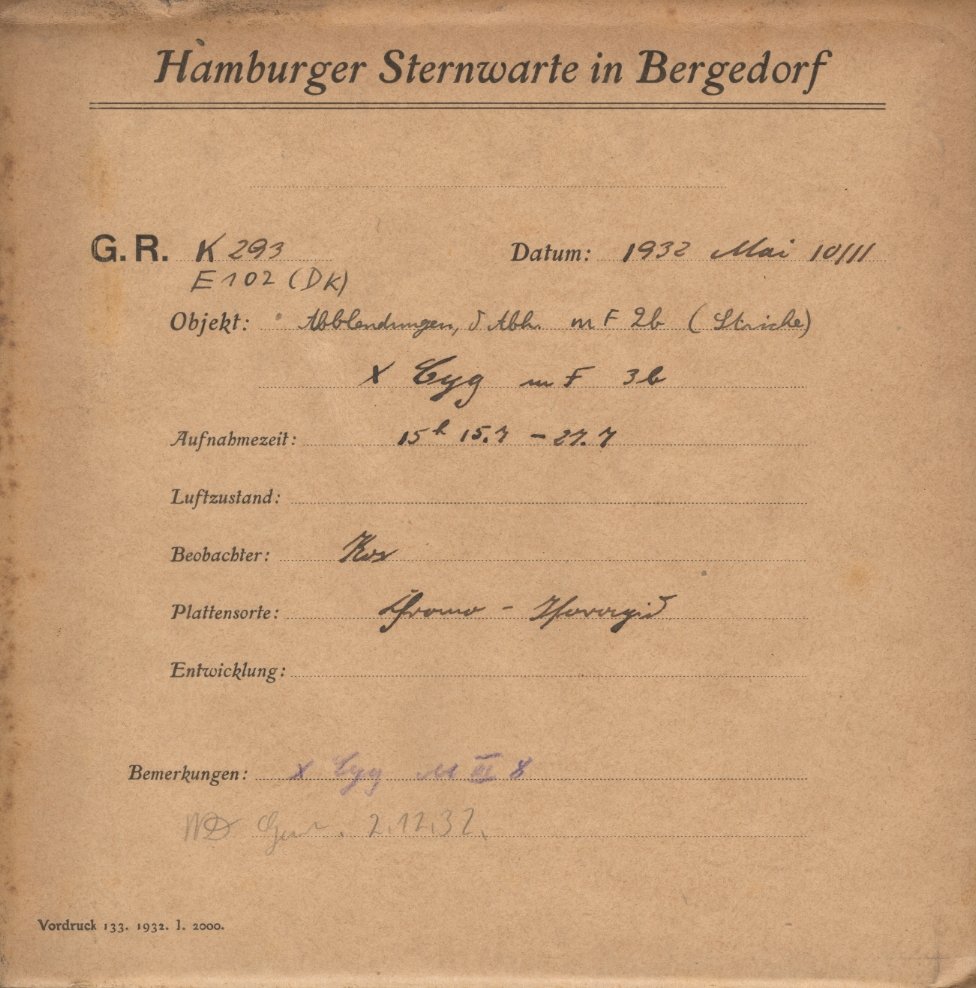 Hamburger Sternwarte in Bergedorf
G. R. K 293 Datum: 1932 Mai 10/11
E 102 (DK)
Objekt: Abblendungen, m F 2b (Striche)
X Cyg m F 3b
Aufnahmezeit: 15h 15.7 – 27.7
Luftzustand:
Beobachter:
Plattensorte: Chromo -
Entwicklung:
Bemerkungen: X Cyg M III 8
2.12.32.
Vordruck 133. 1932. I. 2000.